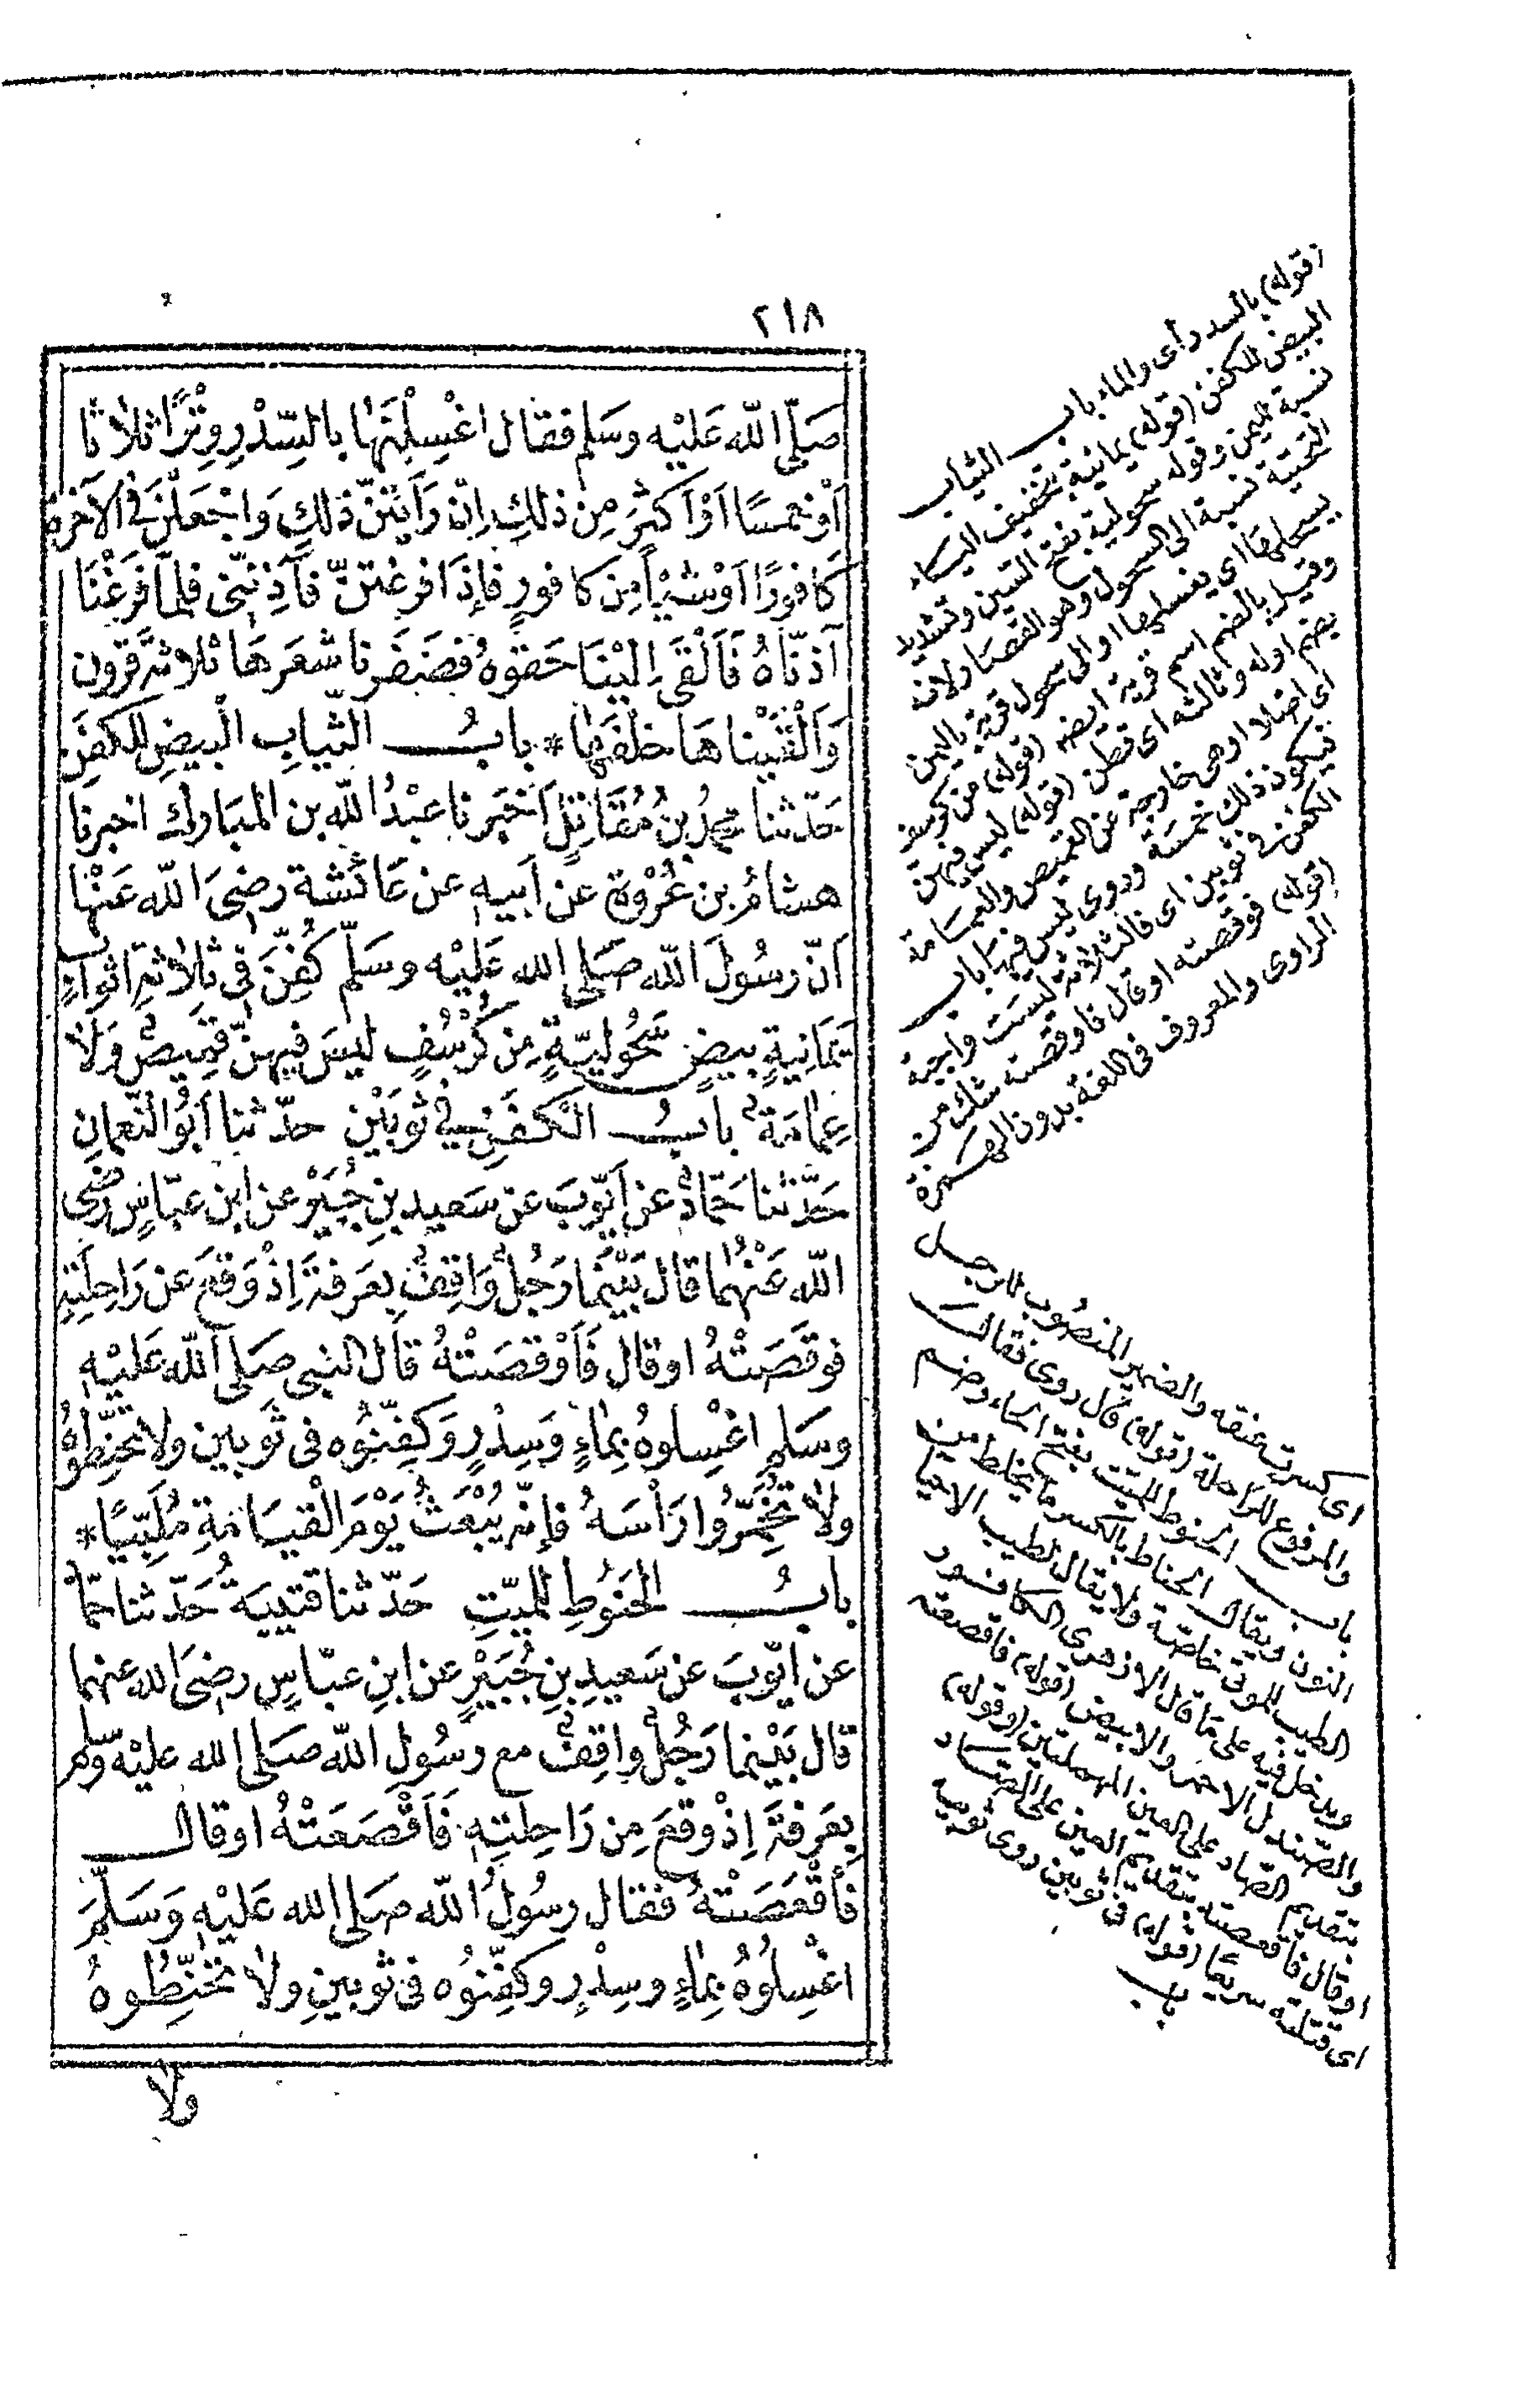 ٢١٨
صَلَّى اللّه عَلَيْه وسَلم فقال اغْسِلْنَهَا بالسِّدْرِ وِتْرًا ثلاثا
اَوْ خمسًا اَوْ اَكثَرَ مِن ذلكِ اِنْ رَاَيتُنّ ذلكِ وَاجْعَلْنَ فى الآخرة
كافورًا اَوْ شَيْأً مِن كافورٍ فإذا فرغتنّ فَآذِنّنى فلما فَرَغْنَا
آذنّاهُ فَاَلْقَى اِليْنَا حَقوَهُ فضَفَرنا شَعَرَهَا ثلاثةَ قرون
وَاَلْقَيْناهَا خلْفَهَا * بابُ الثّيابِ الْبيضِ لِلكفَنِ
حَدّثنا محمدُ بنُ مُقَاتِلٍ اَخبَرنا عبْدُ اللّه بن المبَارك اخبرنا
هشامُ بن عُرْوَة عن اَبيهِ عن عَائشة رضىَ اللّه عَنْها
اَنّ رسُولَ اللّه صَلى الله عَليْه وسَلّم كُفِّنَ فى ثلاثةِ اثوابٍ
يَمَانِيَةٍ بيضٍ سَحُوليّةٍ مِن كُرْسُفٍ ليسَ فيهِنّ قميصٌ وَلا
عِمامَةٌ بابُ الكفَنِ فى ثوبَيْن حدّثنا اَبُو النّعمانِ
حَدَّثنا حَمّادٌ عن اَيّوبَ عن سَعيد بنِ جُبَيْر عن ابن عبّاسٍ رضى
اللّه عَنْهُما قال بَيْنَمَا رَجُلٌ وَاقِفٌ بعَرفةَ اِذْ وَقعَ عن رَاحِلَتِهِ
فوقَصَتْهُ اوقال فَاَوْقصَتْهُ قال النبى صَلى اللّه عَليْهِ
وسَلم اغسِلوهُ بمَاءٍ وَسِدْرٍ وَكفِّنُوه فى ثوبين ولا تحَنِّطُوهُ
ولا تُخَمِّرُوا رَاْسَهُ فإنّه يُبْعَثُ يَوْمَ الْقيَامَةِ مُلَبِّيًا *
بابُ الحَنُوطِ للميّتِ حَدّثنا قتيبَةُ حَدّثنا حمّادٌ
عن ايّوبَ عن سَعيدِ بنِ جُبَيْرٍ عن ابنِ عبّاسٍ رضىَ الله عنهما
قال بَيْنما رَجُلٌ واقِفٌ مع رسُولِ اللّه صَلى الله عليْه وسَلم
بعَرفةَ اِذْ وقعَ مِن رَاحِلتِهِ فَاَقْصَعَتْهُ اوقال
فَاَقْعَصَتْهُ فقال رسُولُ اللّه صَلى الله عَليْهِ وَسَلّمَ
اغْسِلُوهُ بمَاءٍ وسِدْرٍ وكفِّنُوه فى ثوبينِ ولا تحَنِّطُوهُ
ولا
(قوله) بالسدر أى والماء باب الثياب
البيض للكفن (قوله) يمانية بتخفيف اليَاء
نسبة لليمن وقوله سحولية بفتح السّين وتشديد
التحتية نسبة الى السحول وهو القصار لانه
يسحلها اى يغسلها او الى سحول قرية باليمن
وقيل بالضم اسم قرية ايضا (قوله) من كرسف
بضم اوله وثالثه اى قطن (قوله) ليس فيهن
اى اصلا او هى خارجة عن القميص والعمَامة
فيكون ذلك خمسَة وروى ليس فيها باب
الكفن فى ثوبين اى فالثلاثة ليسَت واجبة
(قوله) فوقصته اوقال فاوقصته شك من
الراوى والمعروف فى اللغة بدون الهمزة
اى كسرت عنقه والضهير المنصُوب للرجل
والمرفوع للراحلة (قوله) قال روى فقال
باب الحنوط للميّت بفتح الحاء وضم
النون ويقال الحناط بالكسر ما يخلط من
الطيب للموتى خاصّة ولا يقال لطيب الاحيا
ويدخل فيه على مَا قال الازهرى الكافور
والصّندل الاحمر والابيض (قوله) فاقصعته
بتقديم الصّاد على العين المهملتين (وقوله)
اوقال فاقعصته بتقديم العين على الصّاد
اى قتلته سريعًا (قوله) فى ثوبين روى ثوبيه
باب